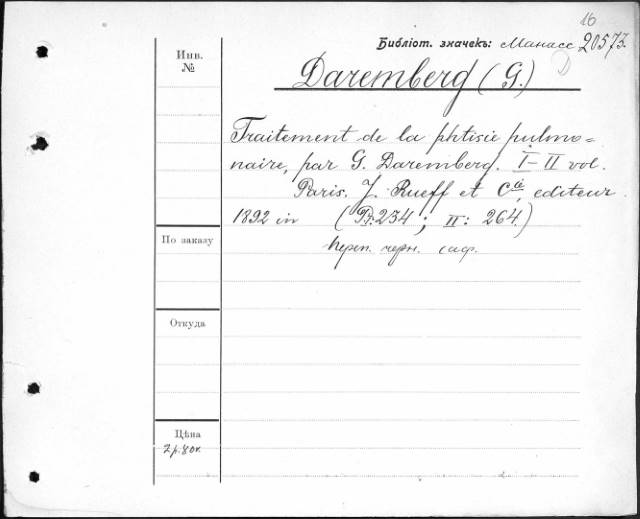 16
Библіот. значекъ: Манасс 20573.
D
Инв.
№
Daremberg (G.)
Traitement de la phtisie pulmo=
naire, par G. Daremberg. I–II vol.
Paris. J. Rueff et Cie, editeur
1892 in ( I: 234 ; II: 264.)
перепл. черн. саф.
По заказу
Откуда
Цѣна
2 р. 80 к.